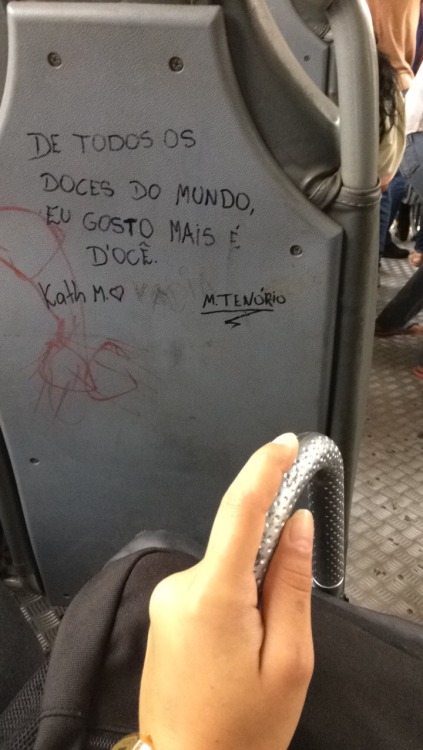 DE TODOS OS
DOCES DO MUNDO,
EU GOSTO MAIS É
D'OCÊ.
Kath M.♡ M.TENÓRIO